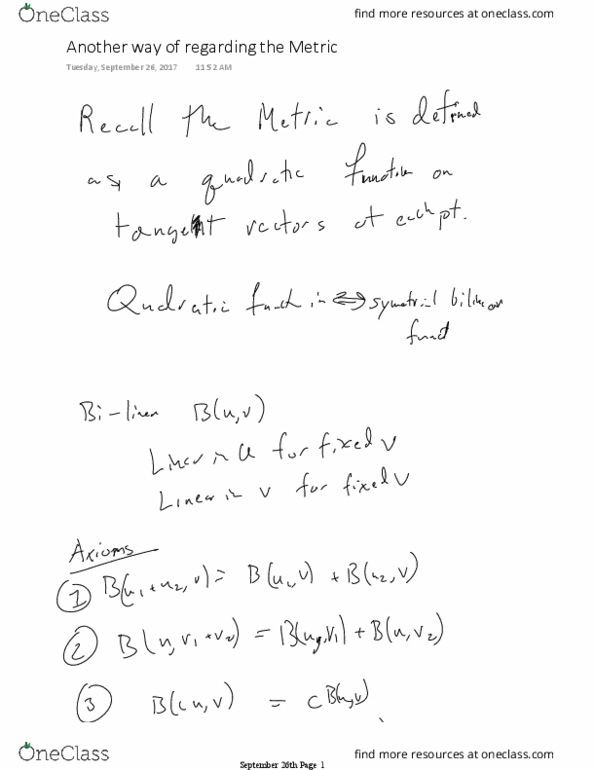 OneClass find more resources at oneclass.com
Another way of regarding the Metric
Tuesday, September 26, 2017 11:52 AM
Recall the Metric is defined
as a quadratic function on
tangent vectors at each pt.
Quadratic function ⟺ symmetrical bilinear
funct
Bi-linear B(u,v)
Linear in u for fixed v
Linear in v for fixed v
Axioms
① B(u₁+u₂,v) = B(u₁,v) + B(u₂,v)
② B(u,v₁+v₂) = B(u,v₁) + B(u,v₂)
③ B(cu,v) = c B(u,v)
OneClass find more resources at oneclass.com
September 26th Page 1